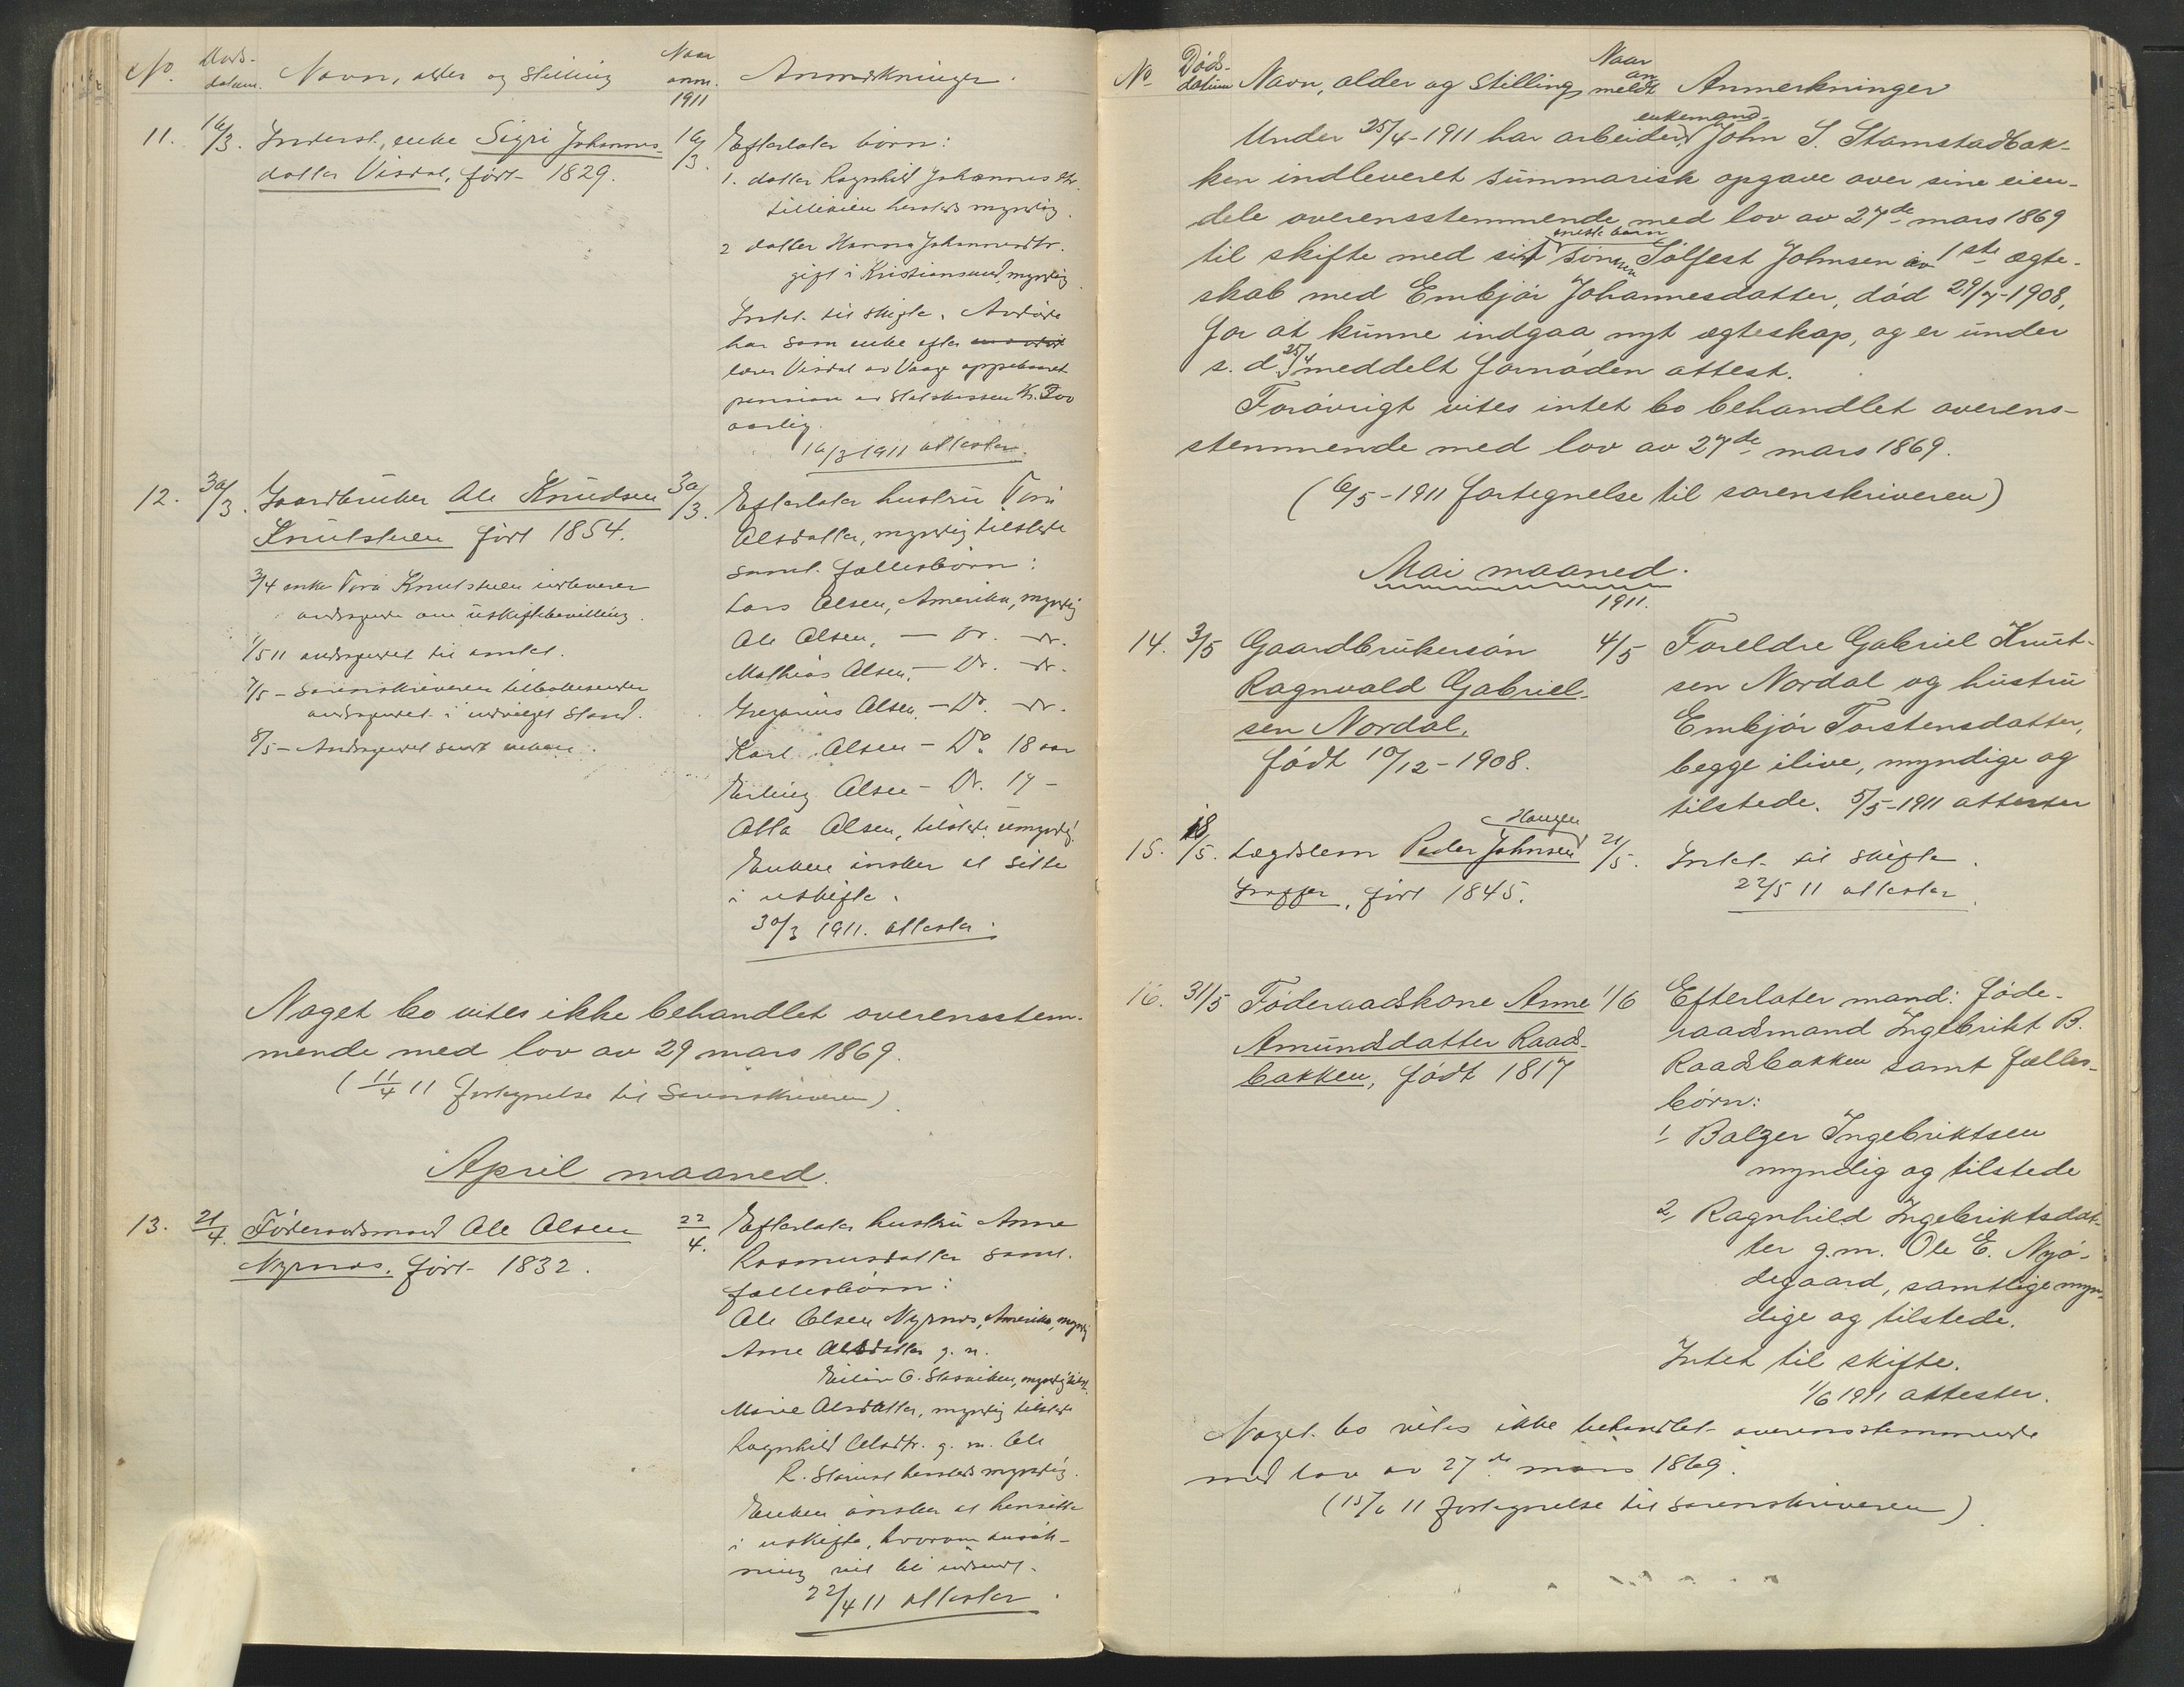 No. Døds-datum. Navn, alder og stilling Naar anm. 1911 Anmerkninger.
11. 16/3. Inderst, enke Sigri Johannes- 16/3
datter Visdal, født 1829.
Efterlater börn:
1. datter Ragnhild Johannesdtr.
tilstede hersteds myndig.
2 datter Hanna Johannesdtr.
gift i Kristiansund, myndig
Intet til skifte. Avdøde
har som enke efter
lærer Visdal av Vaage oppebaaret
pension av statskassen Kr.
aarlig.
16/3 1911 attester.
12. 30/3. Gaardbruker Ole Knudsen 30/3.
Knutstuen født 1854.
3/4 enke Torø Knutstuen indleverer
andragende om uskiftebevilling.
1/5 11 andragendet til amtet.
7/5 - Sorenskriveren tilbakesender
andragendet i indvilget stand.
8/5 - Andragendet sendt enken.
Efterlater hustru
Olsdatter, myndig tilstede
samt fællesbörn:
Lars Olsen, Amerika, myndig
Ole Olsen, — Do. — do.
Mathias Olsen, — Do. — do.
Gregorius Olsen, — Do. — do.
Karl Olsen — Do. 18 aar
Erling Olsen — Do. 17 —
Olla Olsen, tilstede umyndig
Enken önsker at sitte
i uskifte.
30/3 1911. attester.
Noget bo vites ikke behandlet overensstem-
mende med lov av 29 mars 1869.
(11/4 11 fortegnelse til Sorenskriveren)
April maaned.
13. 21/4. Föderaadsmand Ole Olsen 22/4.
Nyrnæs, født 1832.
Efterlater hustru Anne
Rasmusdatter samt
fællesbörn:
Ole Olsen Nyrnæs, Amerika, myndig
Anne Olsdatter g. m.
O. myndig tilst.
Marie Olsdatter, myndig tilstede
Ragnhild Olsdtr. g. m. Ole
R. hersteds myndig.
Enken önsker at hensitte
i uskifte, hvorom ansök-
ning vil bli indsendt.
22/4 11 attester.
No Döds-datum Navn, alder og stilling Naar an meldt Anmerkninger
enkemand
Under 25/4 - 1911 har arbeider John S. Stamstadbak-
ken indleveret summarisk opgave over sine eien-
dele overensstemmende med lov av 27de mars 1869
eneste barn
til skifte med sit sönnen Sölfest Johnsen av 1ste ægte-
skab med Embjör Johannesdatter, död 29/7 - 1908,
for at kunne indgaa nyt ægteskap, og er under
s. d. 25/4 meddelt fornöden attest.
Forövrigt vites intet bo behandlet overens-
stemmende med lov av 27de mars 1869.
(6/5 - 1911 fortegnelse til sorenskriveren)
Mai maaned.
1911.
14. 3/5 Gaardbrukersön 4/5
Ragnvald Gabriel-
sen Nordal,
födt 10/12 - 1908.
Foreldre Gabriel Knut-
sen Nordal og hustru
Embjör Torstensdatter,
begge ilive, myndige og
tilstede. 5/5 - 1911 attester
Haugen
15. 18/5. Lægdslem Peder Johnsen 21/5. Intet til skifte.
født 1845. 22/5 11 attester.
16. 31/5 Föderaadskone Anne 1/6
Amundsdatter Raad-
bakken, födt 1817
Efterlater mand: föde-
raadsmand Ingebrikt B.
Raadbakken samt fælles-
börn:
1, Balzer Ingebriktsen
myndig og tilstede
2, Ragnhild Ingebriktsdat-
ter g.m. Ole E. Nyö-
degaard, samtlige myn-
dige og tilstede.
Intet til skifte.
1/6 1911 attester.
Noget bo vites ikke behandlet overensstemmende
med lov av 27de mars 1869.
(15/6 11 fortegnelse til sorenskriveren)